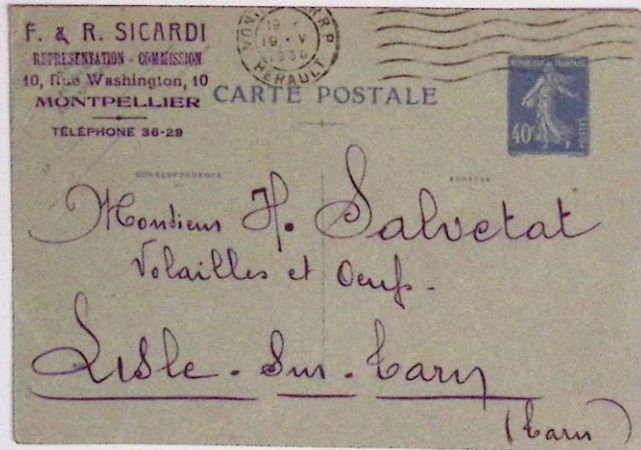 F. & R. SICARDI
REPRESENTATION - COMMISSION
10, Rue Washington, 10
MONTPELLIER
TÉLÉPHONE 36-29
19 - V
HERAULT
CARTE POSTALE
REPUBLIQUE FRANÇAISE
40c
POSTES
CORRESPONDENCE
ADRESSE
Monsieur H. Salvetat
Volailles et Oeufs.
Lisle - Sur - Tarn
(Tarn)